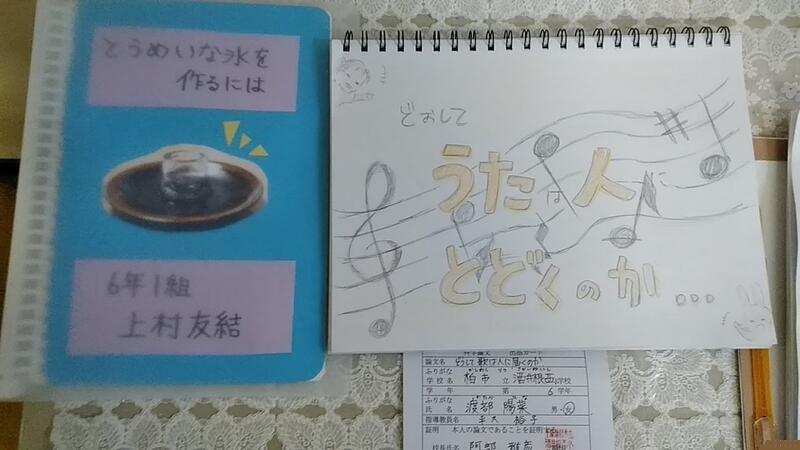 とうめいな氷を
作るには
6年1組
上村友結
どおして
うたは人に
とどくのか...
科学論文 出品カード
論文名 どうして歌は人に届くのか
ふりがな
学校名 柏市 立 酒井根西小学校
学年 第 6 学年
ふりがな
氏名 渡部 陽菜 男・女
指導教員名
証明 本人の論文であることを証明する
校長氏名 阿部